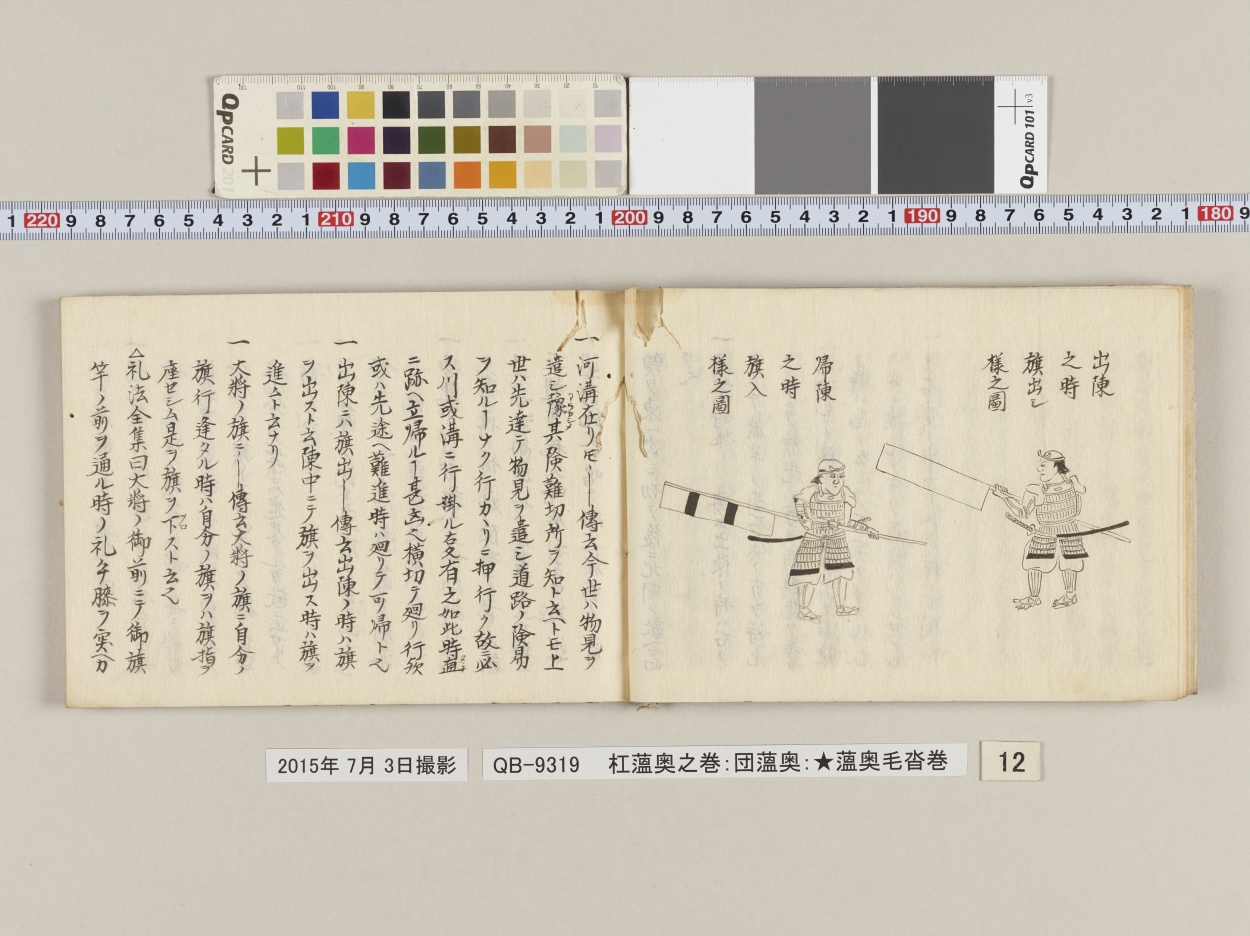 QpCARD 201
QpCARD 101 v3
1 220 9 8 7 6 5 4 3 2 1 210 9 8 7 6 5 4 3 2 1 200 9 8 7 6 5 4 3 2 1 190 9 8 7 6 5 4 3 2 1 180 9
出陳
之時
旗出シ
様之圖
帰陳
之時
旗入
様之圖
一河溝在リ
傳云今世ハ物見ヲ
遣シ豫其険難切所ヲ知ト云ヘトモ上
世ハ先達テ物見ヲ遣シ道路ノ険易
ヲ知ルーナク行カヽリニ押行ク故
ス川或溝ニ行掛ル
有之如此時直
ニ跡ヘ立帰ルー
横切テ廻リ行
或ハ先途ヘ難進時ハ廻リテ可帰トヘ
一出陳ニハ旗出ー傳云出陳ノ時ハ旗
ヲ出スト云陳中ニテ旗ヲ出ス時ハ旗ヲ
進ムト云ナリ
一大将ノ旗ニー傳云大将ノ旗ニ自分ノ
旗行逢タル時ハ自分ノ旗ヲハ旗指ヲ
座セシム是ヲ旗ヲ下ストヘ
△礼法全集曰大将ノ御前ニテ御旗
竿ノ前ヲ通ル時ノ礼
膝ヲ突
2015年 7月 3日撮影
QB-9319 杠薀奥之巻：団薀奥：★薀奥毛沓巻
12